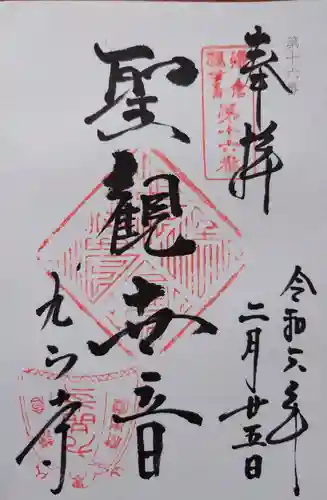 第十六番
奉拝
鎌倉
第十六番
聖観世音
九品寺
令和六年
二月廿五日